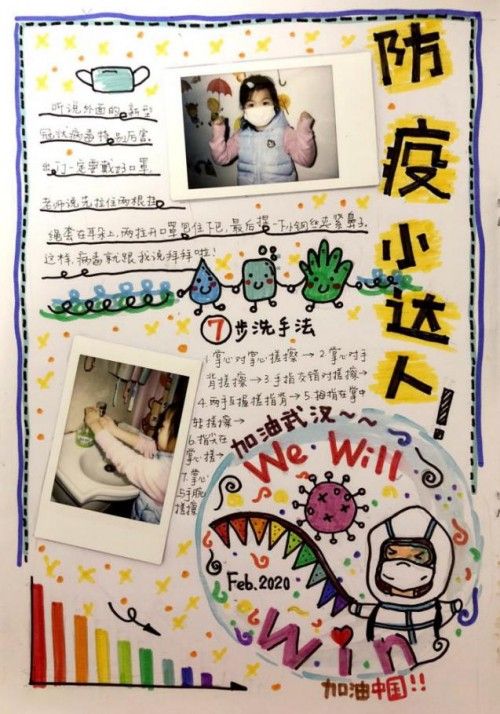 防疫小达人!
听说外面的新型
冠状病毒特别厉害
出门一定要戴好口罩
老师说先拉住两根挂
绳套在耳朵上,两拉开口罩包住下巴,最后捏一下小钢丝夹紧鼻子
这样,病毒就跟我说拜拜啦!
7步洗手法
1.掌心对掌心搓擦→2.掌心对手
背搓擦→3.手指交错对搓擦→
4.两手互握搓指背→5.拇指在掌中
转搓擦→
6.指尖在
掌心搓→
7.掌心
与手腕
搓擦
加油武汉~~
We Will
Feb.2020
Win
加油中国!!